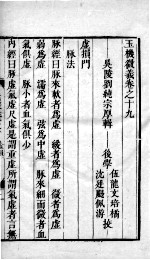 玉機微義卷之十九
吳陵劉純宗厚輯 後學
伍能文培橘
沈廷颺佩游
校
虛損門
脉法
脉經曰脉來軟者為虛 緩者為虛 微者為虛
弱為虛 濡為虛 弦為中虛 脉來細而微者血
氣俱虛 脉小者血氣俱少
內經曰脉氣虛尺虛是謂重虛所謂氣虛者言無